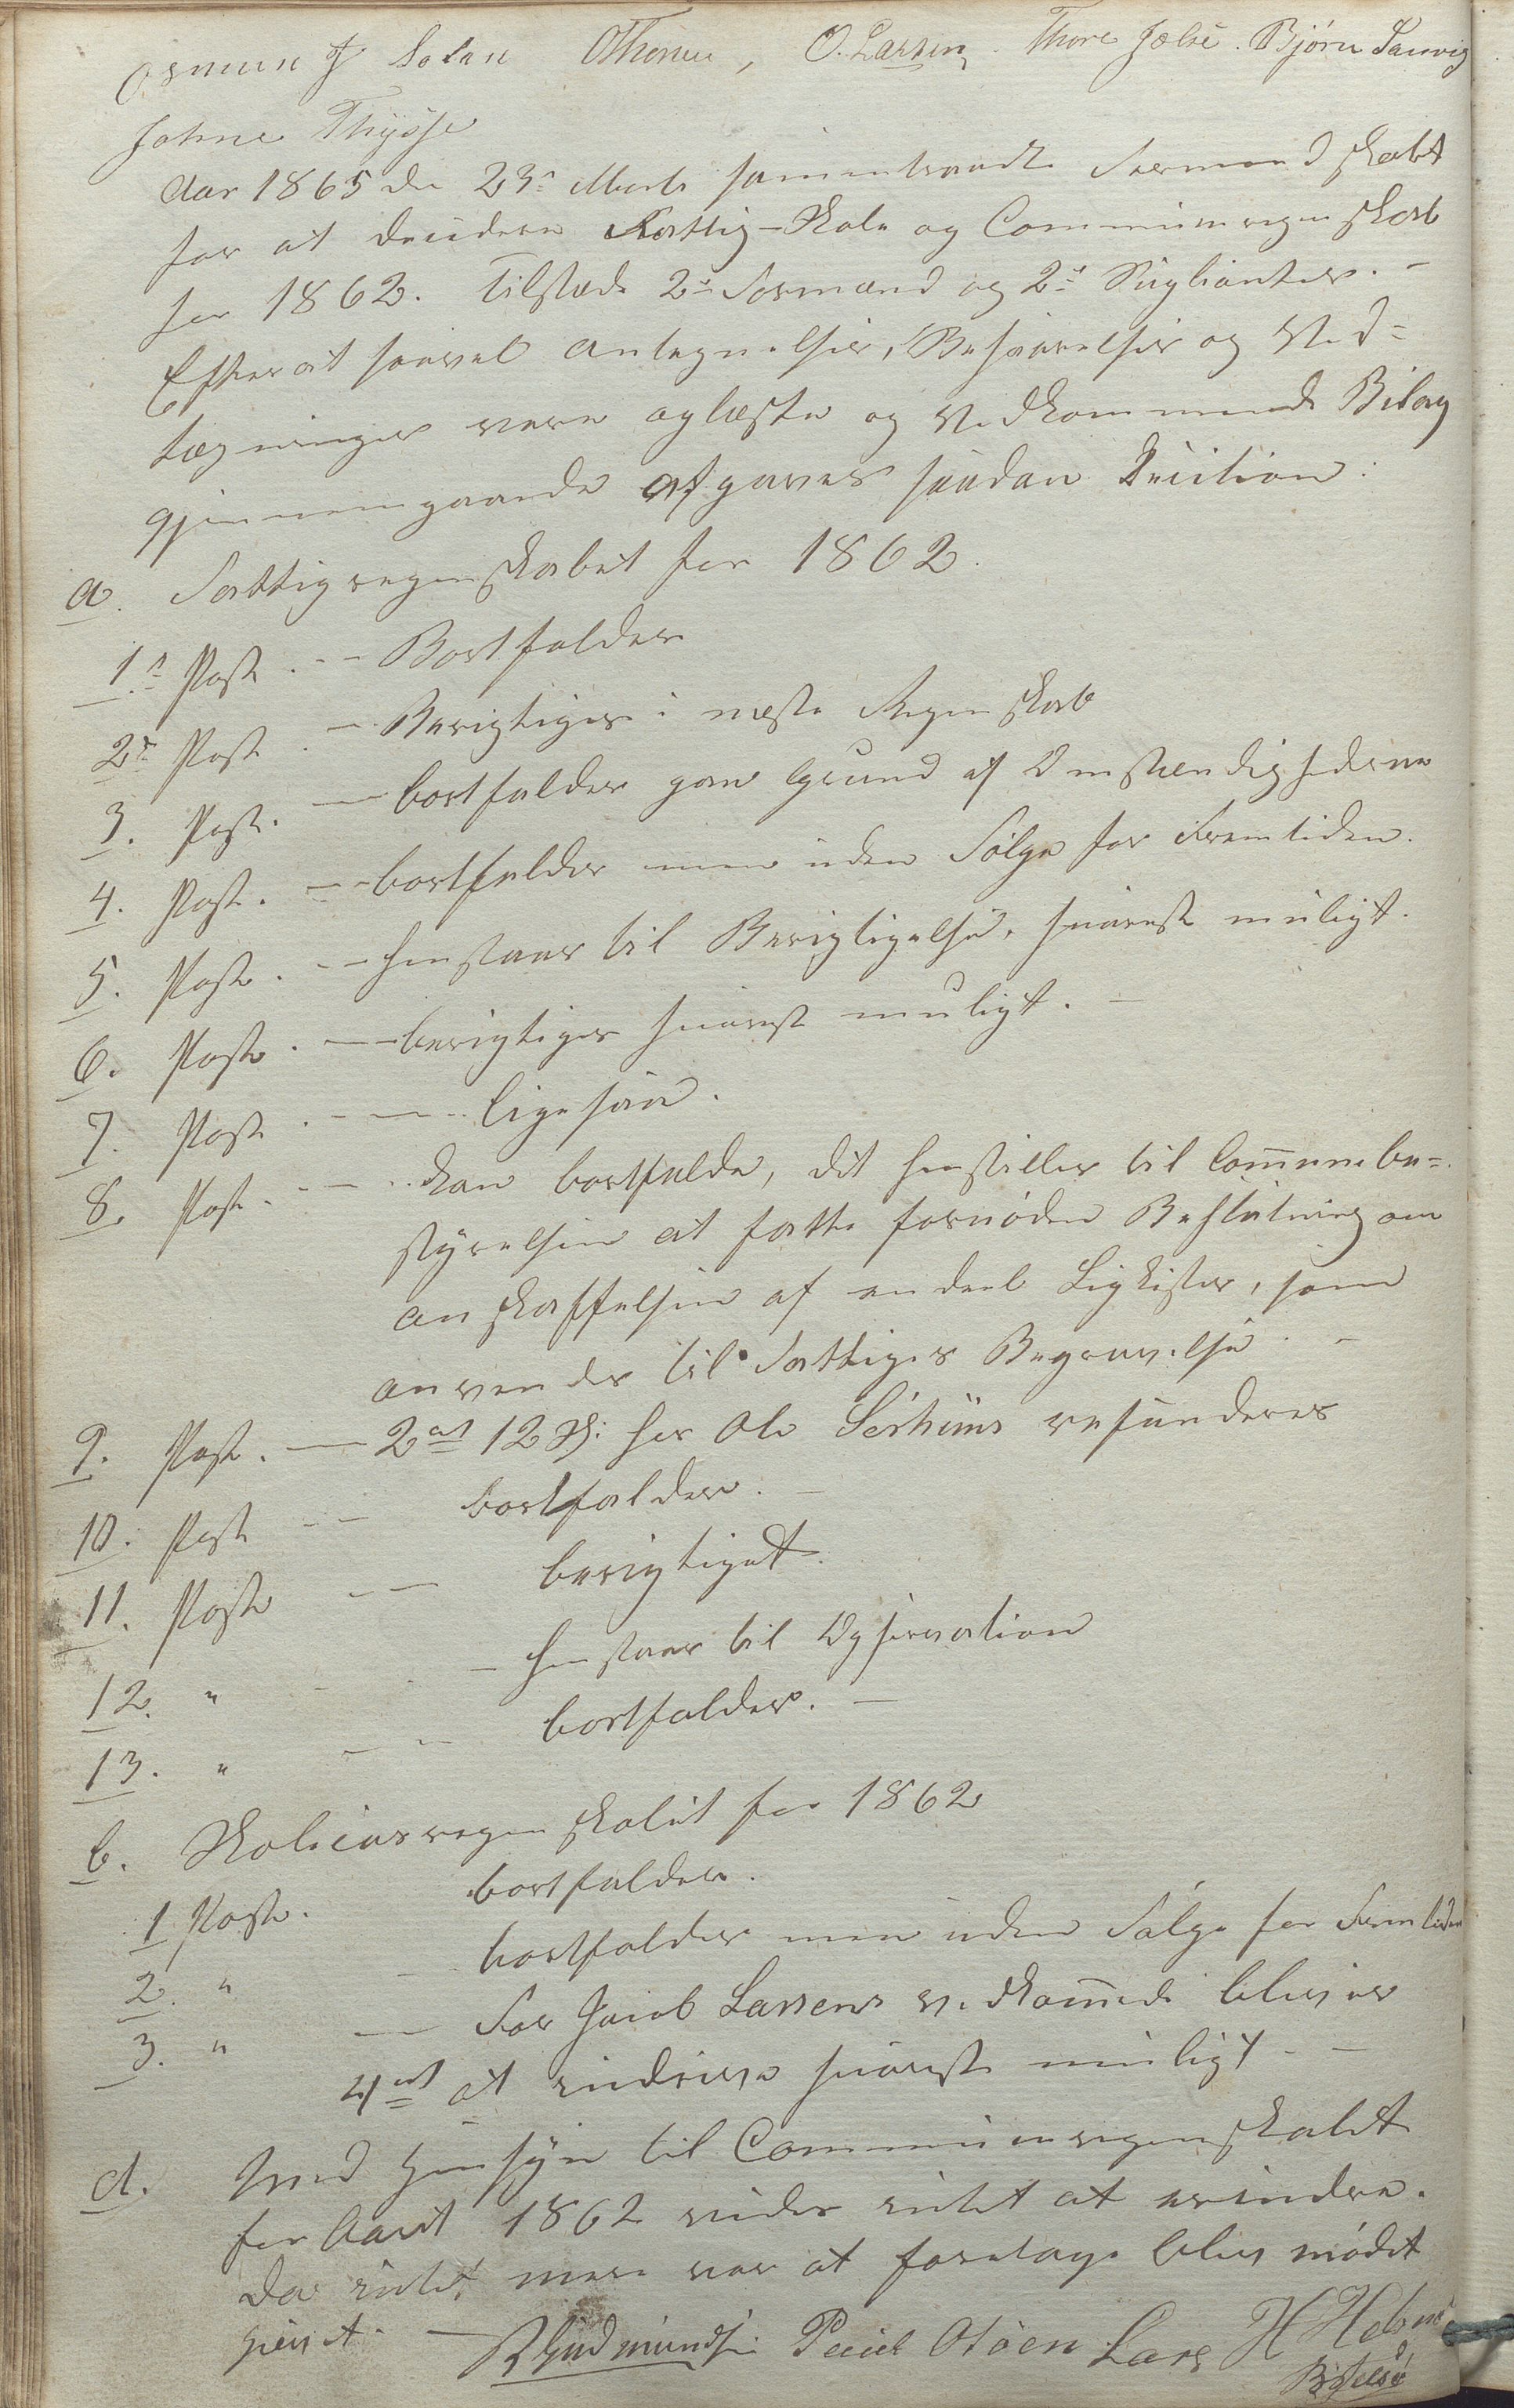 Osmun J Solen OThorsen, O. Larsen. Thore Jelse. Bjørn Sanvig
Johne Thysse
Aar 1865 den 23de Marts sammentraadte Formandskabet
for at decidere Fattig-Skole og Communeregenskab
for 1862. Tilstede 2de Formænd og 2de Supliianter. -
Efterat saavel Antegnelser, Besvarelser og Ved-
tegninger vare oplæste og vedkommende Bilag
gjennemgaaede afgaves saadan Decition:
a. Fattigregenskabet for 1862.
1ste Post. -- Bortfalder
2den Post. - Berigtiges i næste Regenskab
3. Post. - bortfalder paa Grund af Omstændighederne
4. Post. -- bortfalder men uden Følge for Fremtiden.
5. Post. -- henstaar til Berigtigelse, snarest muligt.
6. Post. -- berigtiges snarest muligt. -
7. Post. --- ligesaa.
8. Post. -- kan bortfalde, dit henstilles til Communebe-
styrelsen at fatte fornøden Beslutning om
anskaffelsen af en deel Ligkister, som
anvendes til Fattiges Begravelse -
9. Post. - 2 ort 12 s: for Ole refunderes
10. Post -- bortfalder. -
11. Post -- berigtiget.
12. " - henstaar til Opservation
13. " -- bortfalder. -
b. Skolecasregenskabet for 1862
1 Post. bortfalder.
2. " - bortfalder men uden Følge for Fremtiden
3. " - For Jacob Larsens vedkommende bliver
4 ort at inddrive snarest muligt - -
d. Med Hensyn til Communeregenskabet
for Aaret 1862 vides intet at erindre.
Da intet mere var at foretage blev mødet
hævet. - R Gudmundsen Poul Otöen Lars H Helsnes
B Jelse